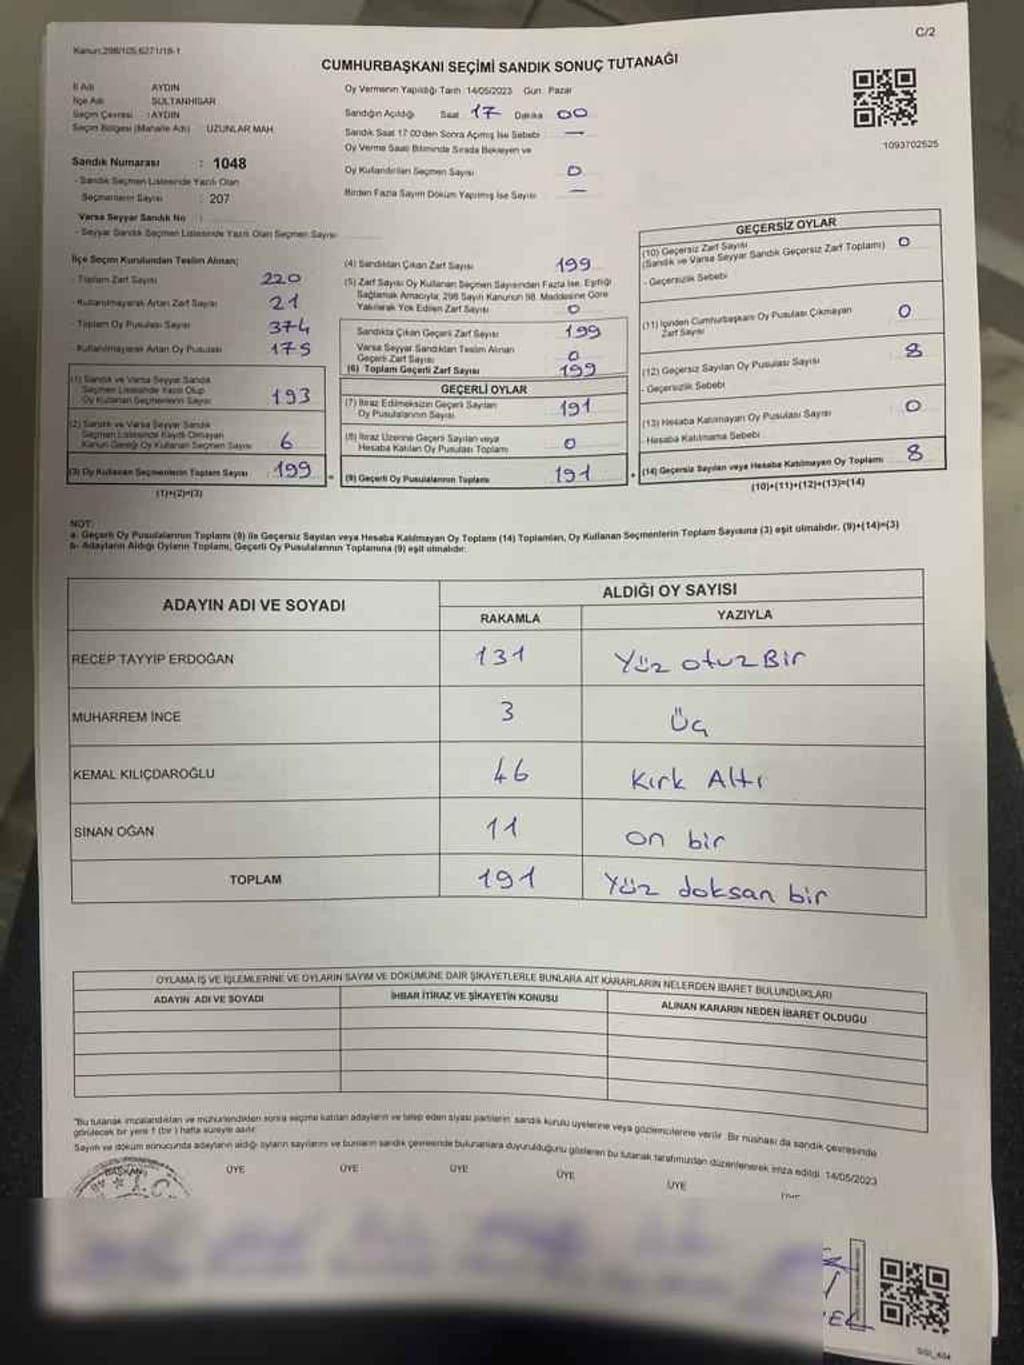 Kanun:298/105,6271/18-1
C/2
CUMHURBAŞKANI SEÇİMİ SANDIK SONUÇ TUTANAĞI
İl Adı AYDIN
İlçe Adı SULTANHİSAR
Seçim Çevresi : AYDIN
Seçim Bölgesi (Mahalle Adı) UZUNLAR MAH.
Sandık Numarası : 1048
- Sandık Seçmen Listesinde Yazılı Olan
Seçmenlerin Sayısı : 207
Varsa Seyyar Sandık No :
- Seyyar Sandık Seçmen Listesinde Yazılı Olan Seçmen Sayısı
Oy Vermenin Yapıldığı Tarih 14/05/2023 Gün: Pazar
Sandığın Açıldığı Saat 17 Dakika 00
Sandık Saat 17:00'den Sonra Açılmış İse Sebebi —
Oy Verme Saati Bitiminde Sırada Bekleyen ve
Oy Kullandırılan Seçmen Sayısı 0
Birden Fazla Sayım Döküm Yapılmış İse Sayısı —
1093702525
İlçe Seçim Kurulundan Teslim Alınan;
- Toplam Zarf Sayısı 220
- Kullanılmayarak Artan Zarf Sayısı 21
- Toplam Oy Pusulası Sayısı 374
- Kullanılmayarak Artan Oy Pusulası 175
(1) Sandık ve Varsa Seyyar Sandık
Seçmen Listesinde Yazılı Olup
Oy Kullanan Seçmenlerin Sayısı 193
(2) Sandık ve Varsa Seyyar Sandık
Seçmen Listesinde Kayıtlı Olmayan
Kanun Gereği Oy Kullanan Seçmen Sayısı 6
(3) Oy Kullanan Seçmenlerin Toplam Sayısı 199
(1)+(2)=(3)
(4) Sandıktan Çıkan Zarf Sayısı 199
(5) Zarf Sayısı Oy Kullanan Seçmen Sayısından Fazla İse, Eşitliği
Sağlamak Amacıyla, 298 Sayılı Kanunun 98. Maddesine Göre
Yakılarak Yok Edilen Zarf Sayısı 0
Sandıkta Çıkan Geçerli Zarf Sayısı 199
Varsa Seyyar Sandıktan Teslim Alınan
Geçerli Zarf Sayısı 0
(6) Toplam Geçerli Zarf Sayısı 199
GEÇERLİ OYLAR
(7) İtiraz Edilmeksizin Geçerli Sayılan
Oy Pusulalarının Sayısı 191
(8) İtiraz Üzerine Geçerli Sayılan veya
Hesaba Katılan Oy Pusulası Toplamı 0
(9) Geçerli Oy Pusulalarının Toplamı 191
GEÇERSİZ OYLAR
(10) Geçersiz Zarf Sayısı
(Sandık ve Varsa Seyyar Sandık Geçersiz Zarf Toplamı) 0
- Geçersizlik Sebebi
(11) İçinden Cumhurbaşkanı Oy Pusulası Çıkmayan
Zarf Sayısı 0
(12) Geçersiz Sayılan Oy Pusulası Sayısı 8
- Geçersizlik Sebebi
(13) Hesaba Katılmayan Oy Pusulası Sayısı 0
- Hesaba Katılmama Sebebi
(14) Geçersiz Sayılan veya Hesaba Katılmayan Oy Toplamı 8
(10)+(11)+(12)+(13)=(14)
NOT:
a- Geçerli Oy Pusulalarının Toplamı (9) ile Geçersiz Sayılan veya Hesaba Katılmayan Oy Toplamı (14) Toplamları, Oy Kullanan Seçmenlerin Toplam Sayısına (3) eşit olmalıdır. (9)+(14)=(3)
b- Adayların Aldığı Oyların Toplamı, Geçerli Oy Pusulalarının Toplamına (9) eşit olmalıdır.
ADAYIN ADI VE SOYADI
ALDIĞI OY SAYISI
RAKAMLA YAZIYLA
RECEP TAYYİP ERDOĞAN 131 Yüz otuz Bir
MUHARREM İNCE 3 Üç
KEMAL KILIÇDAROĞLU 46 Kırk Altı
SİNAN OĞAN 11 on bir
TOPLAM 191 Yüz doksan bir
OYLAMA İŞ VE İŞLEMLERİNE VE OYLARIN SAYIM VE DÖKÜMÜNE DAİR ŞİKAYETLERLE BUNLARA AİT KARARLARIN NELERDEN İBARET BULUNDUKLARI
ADAYIN ADI VE SOYADI İHBAR İTİRAZ VE ŞİKAYETİN KONUSU ALINAN KARARIN NEDEN İBARET OLDUĞU
*Bu tutanak imzalandıktan ve mühürlendikten sonra seçime katılan adayların ve talep eden siyasi partilerin sandık kurulu üyelerine veya gözlemcilerine verilir. Bir nüshası da sandık çevresinde
görülecek bir yere 1 (bir) hafta süreyle asılır.
Sayım ve döküm sonucunda adayların aldığı oyların sayılarını ve bunların sandık çevresinde bulunanlara duyurulduğunu gösteren bu tutanak tarafımızdan düzenlenerek imza edildi. 14/05/2023
BAŞKAN ÜYE ÜYE ÜYE ÜYE ÜYE